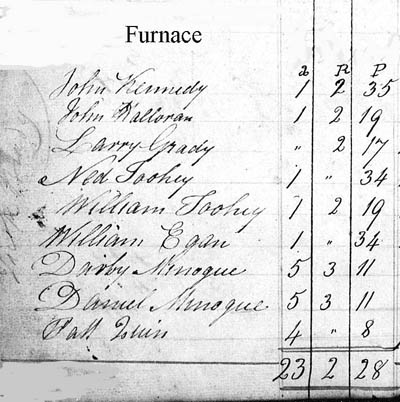 Furnace
a R P
John Kennedy 1 2 35
John Halloran 1 2 19
Larry Grady " 2 17
Ned Toohey 1 " 34
William Toohey 1 2 19
William Egan 1 " 34
Darby Minogue 5 3 11
Daniel Minogue 5 3 11
Patt Quin 4 " 8
23 2 28